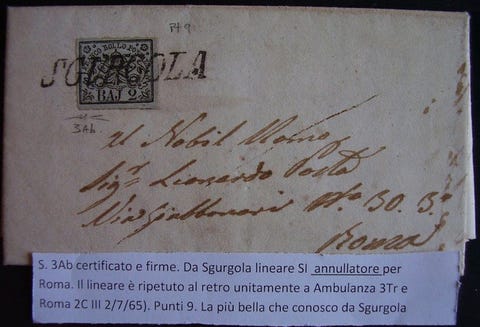 Pt 9
SGURGOLA
BAJ 2
3Ab
Al Nobil Uomo
Sigr Leonardo
No 30. 3o
Roma
S. 3Ab certificato e firme. Da Sgurgola lineare SI annullatore per
Roma. Il lineare è ripetuto al retro unitamente a Ambulanza 3Tr e
Roma 2C III 2/7/65). Punti 9. La più bella che conosco da Sgurgola